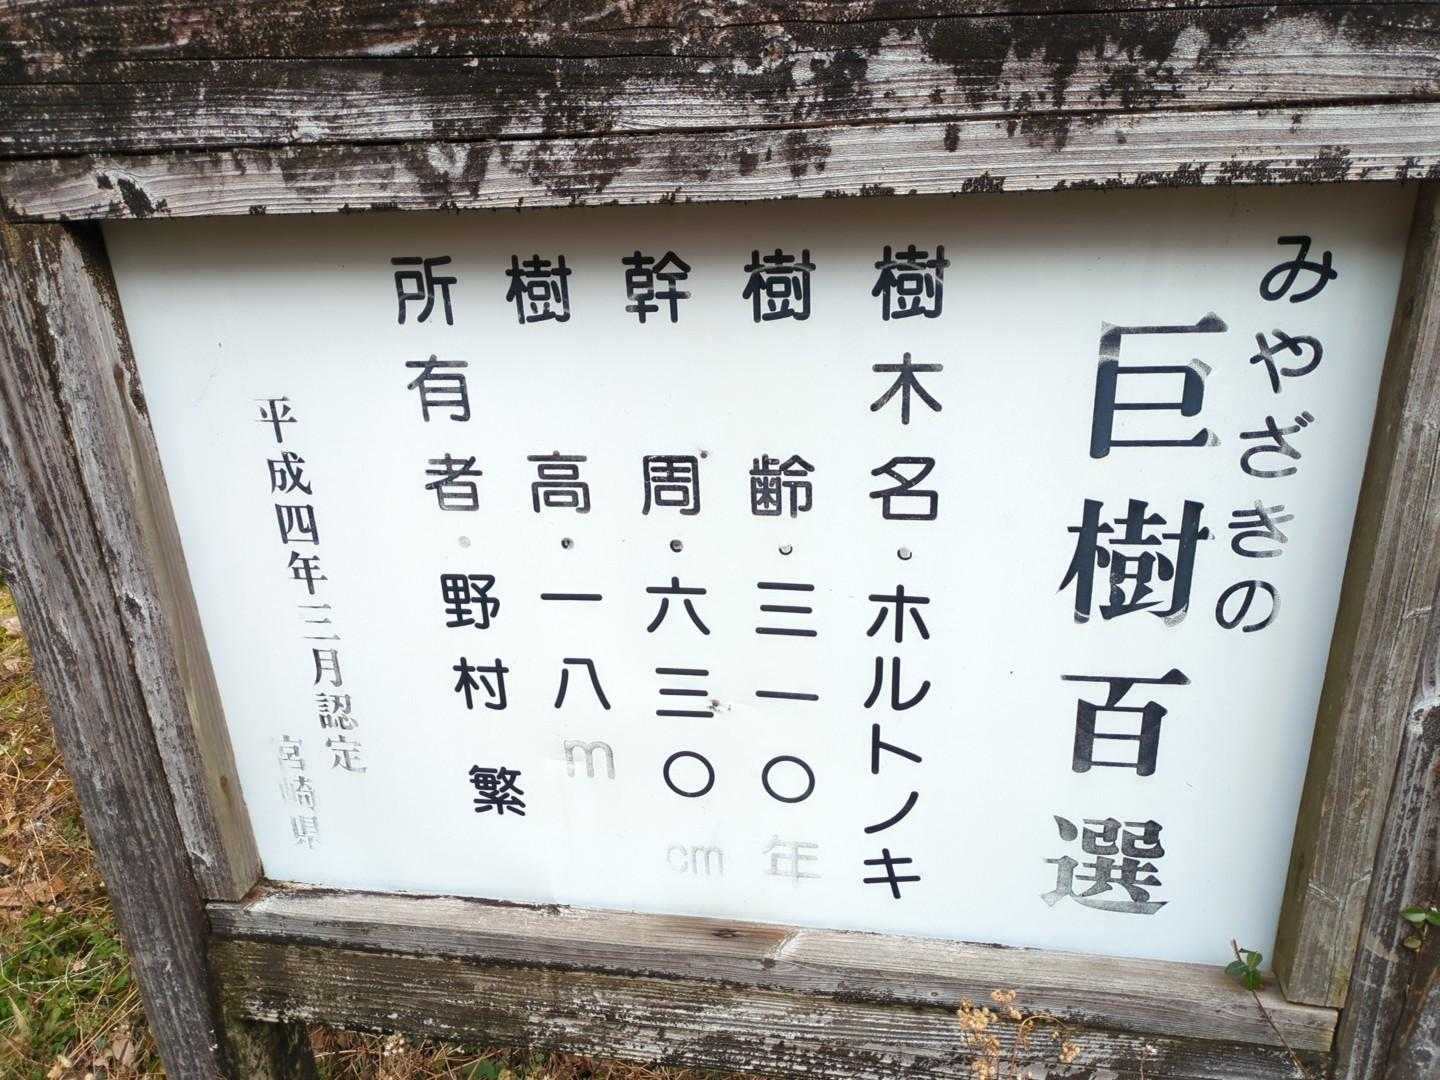 みやざきの
巨樹百選
樹木名・ホルトノキ
樹齢・三一〇年
幹周・六三〇cm
樹高・一八m
所有者・野村繁
平成四年三月認定
宮崎県